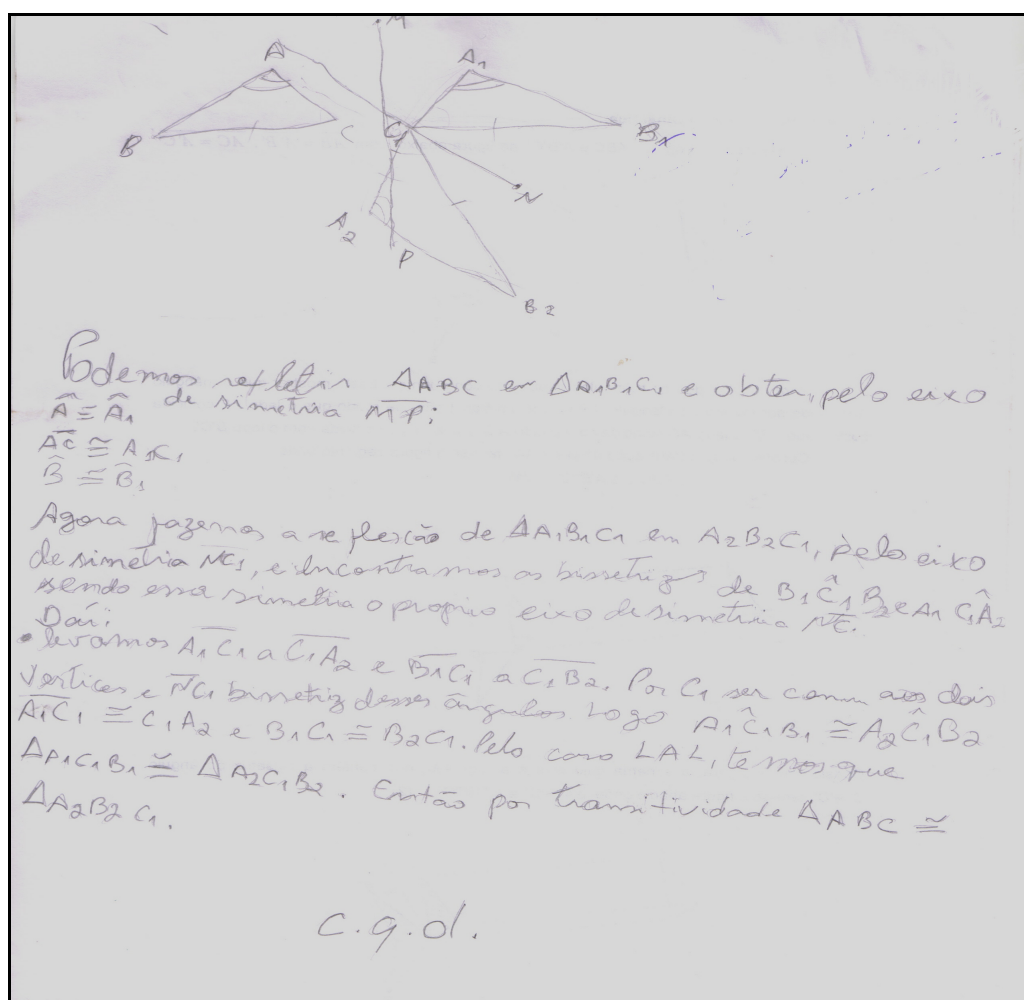 M
A
A1
B
C
C1
B1
N
A2
P
B2
Podemos refletir ΔABC em ΔA1B1C1 e obter, pelo eixo
Â ≅ Â1 de simetria MP;
AC ≅ A1C1
B̂ ≅ B̂1
Agora fazemos a reflexão de ΔA1B1C1 em A2B2C1, pelo eixo
de simetria NC1, e encontramos as bissetriz de B1Ĉ1B2 e A1Ĉ1Â2
sendo essa simetria o proprio eixo de simetria NC.
Daí:
• levamos A1C1 a C1A2 e B1C1 a C1B2. Por C1 ser comum aos dois
vertices e NC1 bissetriz desses ângulos. Logo A1Ĉ1B1 ≅ A2Ĉ1B2
A1C1 ≅ C1A2 e B1C1 ≅ B2C1. Pelo caso LAL, temos que
ΔA1C1B1 ≅ ΔA2C1B2. Então por transitividade ΔABC ≅
ΔA2B2C1.
C.q.d.